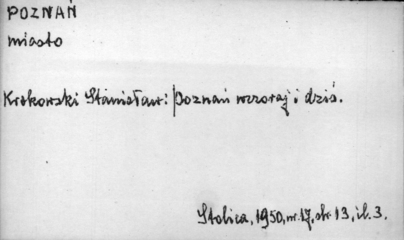 POZNAŃ
miasto
Krokowski Stanisław: Poznań wczoraj i dziś.
Stolica, 1950, nr. 17, str. 13, il. 3.